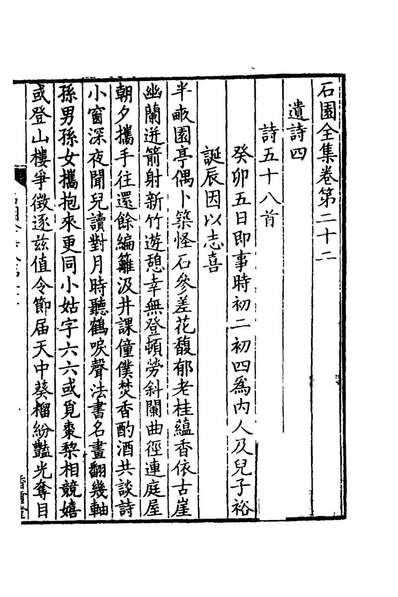 石園全集卷第二十二
遺詩四
詩五十八首
癸卯五日即事時初二初四爲內人及兒子裕
誕辰因以志喜
半畝園亭偶卜築怪石參差花馥郁老桂蘊香依古崖
幽蘭迸箭射新竹遊憩幸無登頓勞斜闌曲徑連庭屋
朝夕攜手往還餘編籬汲井課僮僕焚香酌酒共談詩
小窗深夜聞兒讀對月時聽鶴唳聲法書名畫翻幾軸
孫男孫女攜抱來更同小姑字六六或覓棗棃相競嬉
或登山樓爭徵逐兹值令節届天中葵榴紛豔光奪目